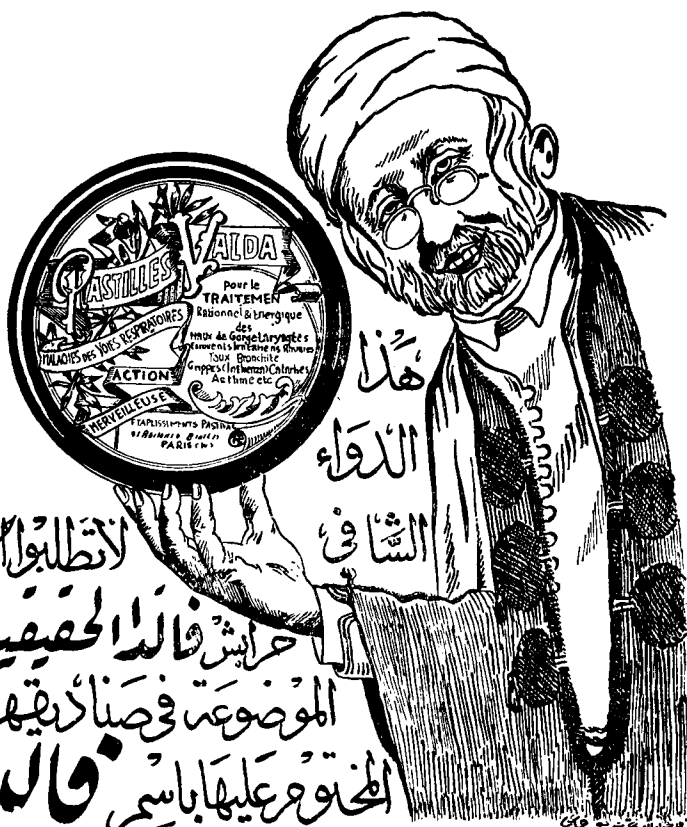 PASTILLES VALDA
MALADIES DES VOIES RESPIRATOIRES
ACTION
MERVEILLEUSE
Pour le
TRAITEMEN
Rationnel & Energique
des
Maux de Gorge Laryngites
Toux Bronchite
Grippes (Influenza) Catarrhes
Asthme etc
PARIS
هٰذا
الدواء
الشافي
لاتطلبوا
حرابش فالدا الحقيقي
الموضوعة في صناديقها
المختوم عليها باسم فالد